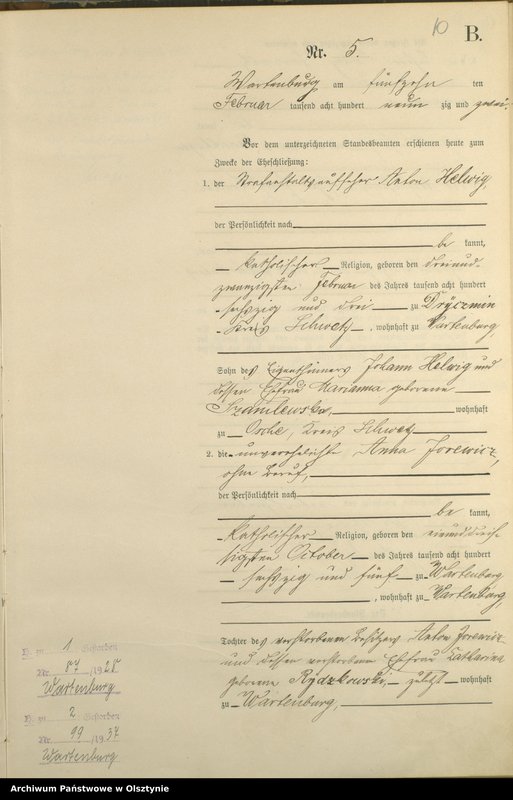 10
B.
Nr. 5.
Wartenburg am fünfzehn ten
Februar tausend acht hundert neun zig und zwei.
Vor dem unterzeichneten Standesbeamten erschienen heute zum
Zwecke der Eheschließung:
1. der Strafanstaltsaufseher Anton Helwig
der Persönlichkeit nach
be kannt,
katholischer Religion, geboren den dreiund-
zwanzigsten Februar des Jahres tausend acht hundert
sechszig und drei zu Dryczmin
Kreis Schwetz, wohnhaft zu Wartenburg,
Sohn des Eigenthümers Johann Helwig und
dessen Ehefrau Marianna geborene
wohnhaft
zu Osche, Kreis Schwetz
2. die unverehelichte Anna Jorewicz,
ohne Beruf,
der Persönlichkeit nach
be kannt,
katholischer Religion, geboren den einunddreißi-
tigsten October des Jahres tausend acht hundert
sechszig und fünf zu Wartenburg
, wohnhaft zu Wartenburg,
Tochter des verstorbenen Besitzers Anton Jorewicz
und dessen verstorbene Ehefrau Katharina
geborene Rydzkowski, zuletzt wohnhaft
zu Wartenburg,
H. zu 1 Gestorben
Nr. 87 /1928
Wartenburg
H. zu 2 Gestorben
Nr. 99 /1937
Wartenburg
Archiwum Państwowe w Olsztynie